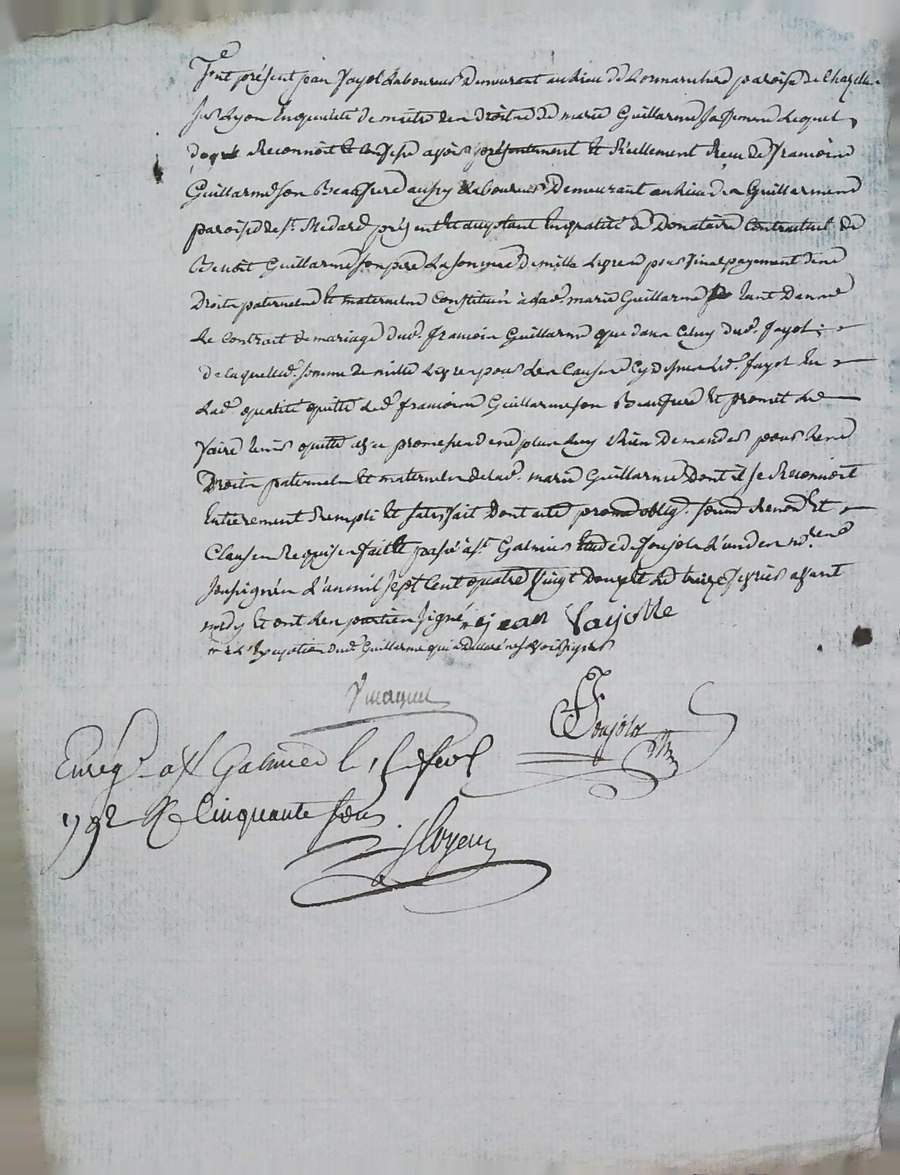 Fut présent jean Fayol Laboureur Demeurant au Lieu de paroisse de Chazelle
sur Lyon En qualité de maitre des Droits de marie Guillarme sa femme Lequel
de gré Reconnoit Et Confesse avoir présentement Et Réellement Reçu de francois
Guillarme son Beaufrere aussy Laboureur Demeurant au Lieu de la Guillarmene
paroisse de st. Medard présent Et acceptant En qualité de Donataire Contractuel de
Benoit Guillarme son pere La somme de mille Livres pour final payement des
Droits paternels Et maternels Constitués à lad. marie Guillarme tant Dans
Le Contrat de mariage dud. francois Guillarme que dans Celuy dud. fayol
de laquelle d. somme de mille Livres pour Les Causes Cy dessus Led. fayol En
lad. qualité quitte Led. francois Guillarme son Beaufrere Et promet Le
faire tenir quitte avec promesse de ne plus Luy Rien Demander pour Les
Droits paternels Et maternels de lad. marie Guillarme Dont il se Reconnoit
Entierement Rempli Et satisfait Dont acte prom. oblig. soum. Renon. Et
Clauses Requises fait Et passé a st. Galmier Etude de foujols L'un des nores
soussignés L'an mil sept Cent quatre vingt Douze Et Le treize fevrier avant
midy Et ont Les parties signé jean fayolle
à L'Exception dud. Guillarme qui a declaré ne savoir signer
foujols
Enrég. a st Galmier le fevr
1792 R Cinquante sous